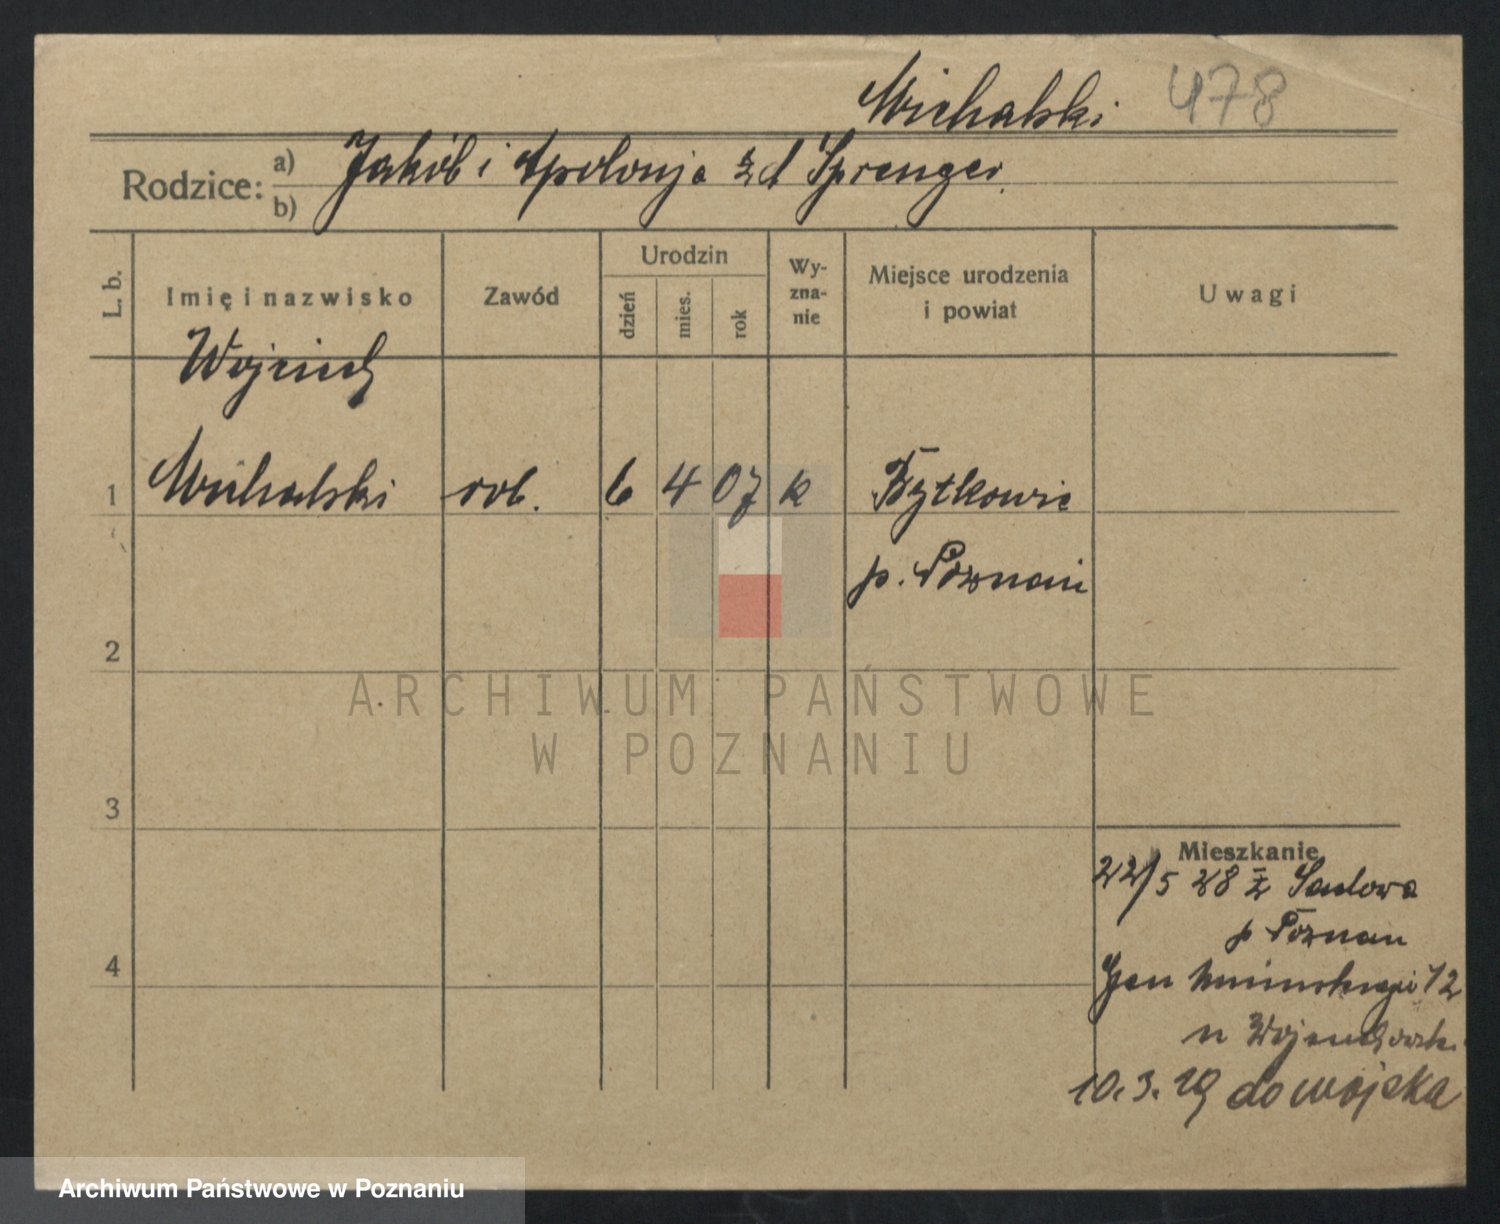 Michalski 478
Rodzice: a) Jakób i Apolonja zd Sprenger
b)
L. b. Imię i nazwisko Zawód Urodzin dzień mies. rok Wyznanie Miejsce urodzenia i powiat Uwagi
Wojciech
1 Michalski rob. 6 4 07 k Bytkowie
p. Poznań
2
ARCHIWUM PAŃSTWOWE
W POZNANIU
3
Mieszkanie
22/5 28 z Sadowa
p Poznan
Gen 12
u
4
10.3.29 do wojska
Archiwum Państwowe w Poznaniu